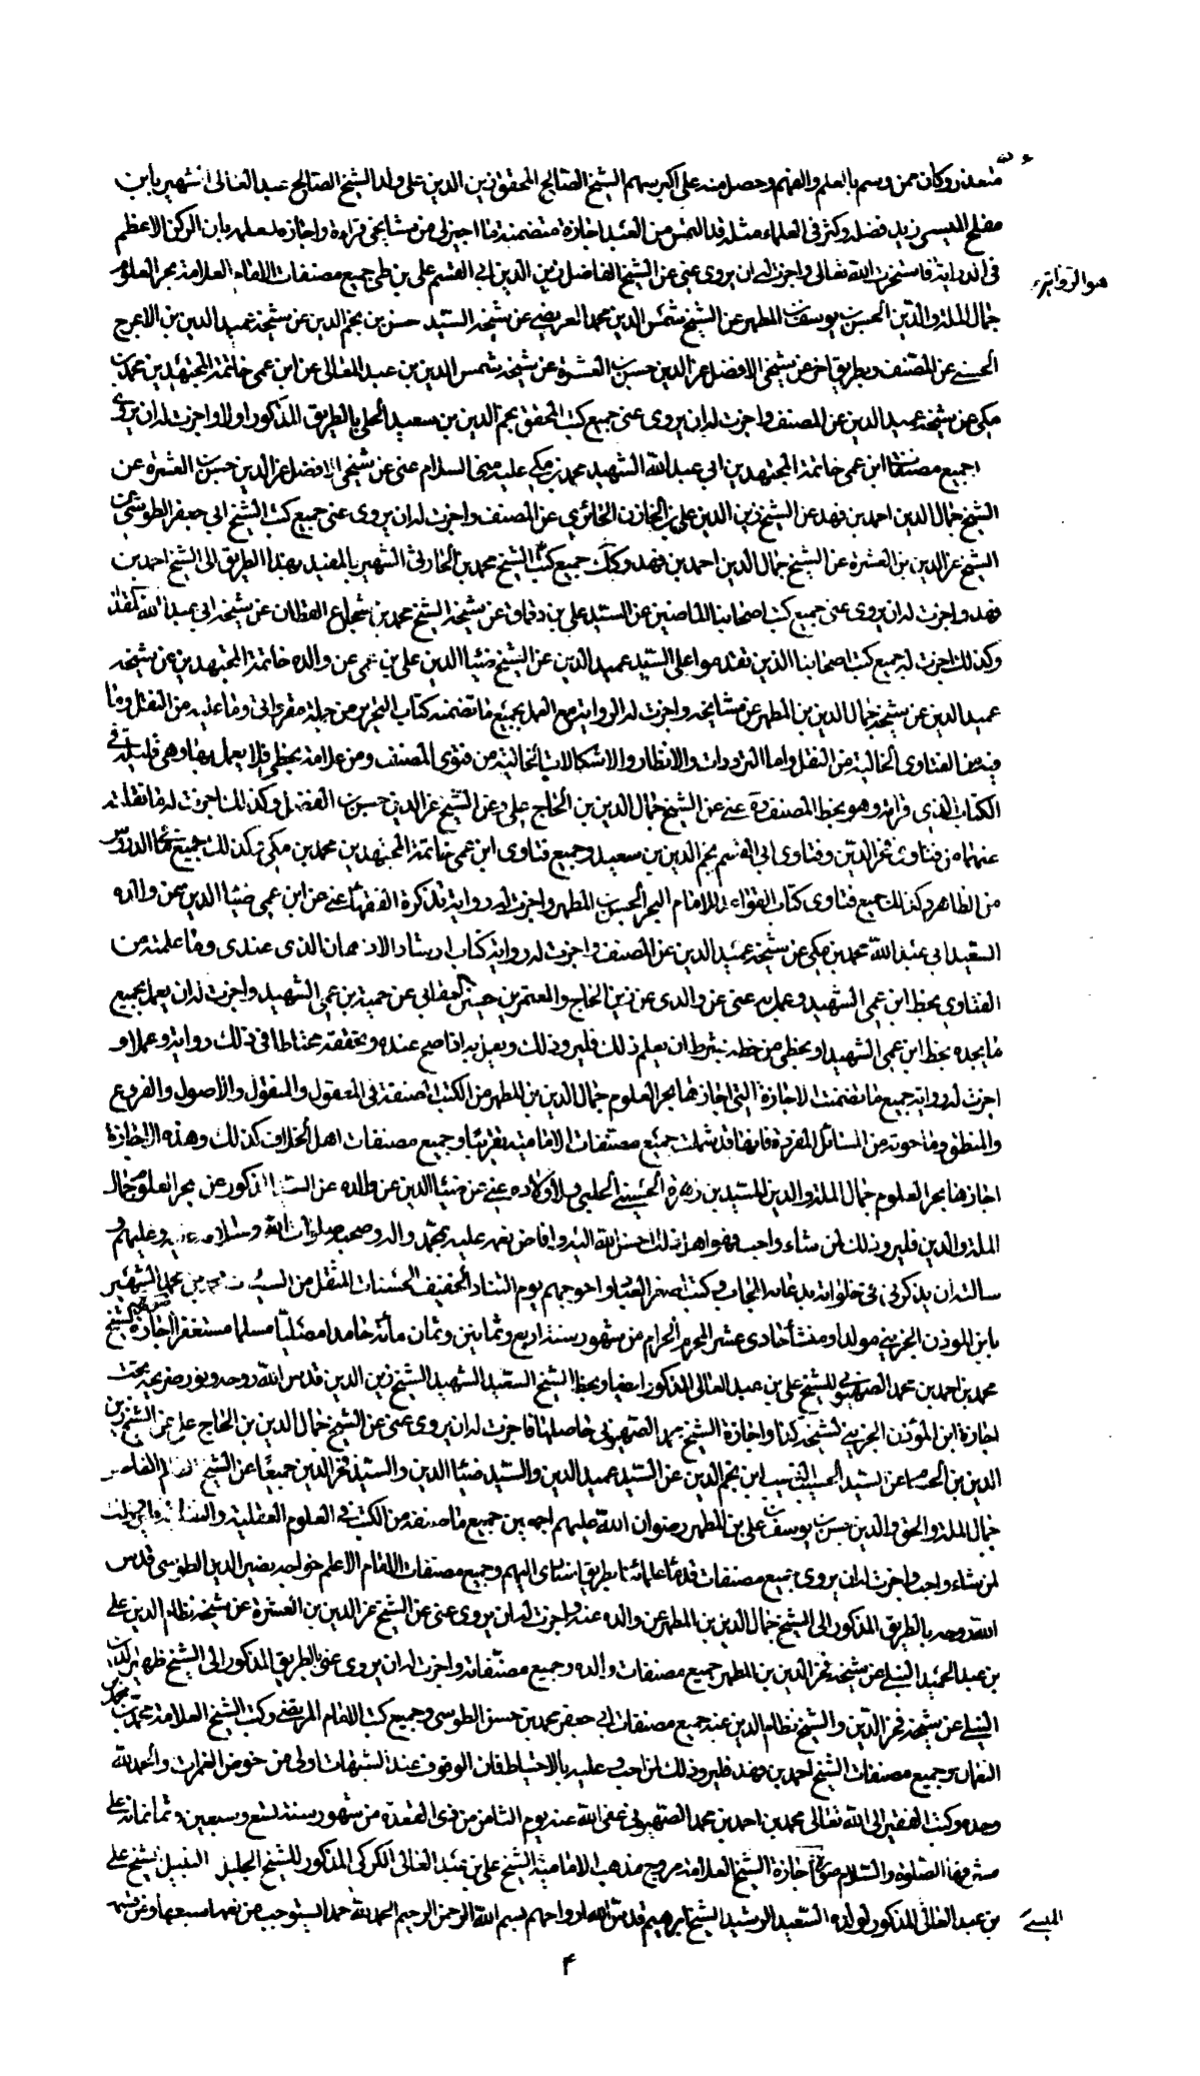 متعذر وكان ممن وسم بالعلم والفهم وحصل منه على اكبر سهم الشيخ الصالح المحقق زين الدين على ولد الشيخ الصالح عبد العالى الشهير بابن
مفلح الميسى زيد فضله وكثر فى العلماء مثله قد التمس من العبد اجازة متضمنة لما اجيز لى من مشايخى قراءة واجازة بان الركن الاعظم
فى الدراية فاستخرت الله تعالى واجزت له ان يروى عنى عن الشيخ الفاضل زين الدين ابى القسم على بن طى جميع مصنفات الامام العلامة بحر العلوم
هو الرواية
جمال الملة والدين الحسن بن يوسف بن المطهر عن الشيخ شمس الدين محمد العريضى عن شيخه السيد حسن بن نجم الدين عن شيخه عميد الدين بن الاعرج
الحسينى عن المصنف وبطريق اخر عن شيخى الافضل عز الدين حسن بن العشرة عن شيخه شمس الدين بن عبد العالى عن ابن عمى خاتمة المجتهدين محمد بن
مكى عن شيخه عميد الدين عن المصنف واجزت له ان يروى عنى جميع كتب المحقق نجم الدين بن سعيد الحلى بالطريق المذكور اولا واجزت له ان يروى
جميع مصنفات ابن عمى خاتمة المجتهدين ابى عبد الله الشهيد محمد بن مكى عليه منى السلام عنى عن شيخى الافضل عز الدين حسن بن العشرة عن
الشيخ جمال الدين احمد بن فهد عن الشيخ زين الدين على بن الخازن الحائرى عن المصنف واجزت له ان يروى عنى جميع كتب الشيخ ابى جعفر الطوسى عن
الشيخ عز الدين بن العشرة عن الشيخ جمال الدين احمد بن فهد وكذلك جميع كتب الشيخ محمد بن الحارثى الشهير بالمفيد بهذا الطريق الى الشيخ احمد بن
فهد واجزت له ان يروى عنى جميع كتب اصحابنا الماضين عن السيد على بن دقماق عن شيخه الشيخ محمد بن شجاع القطان عن شيخه ابى عبد الله المقداد
وكذلك اجزت له جميع كتب اصحابنا الذين تقدموا على السيد عميد الدين عن الشيخ ضياء الدين على بن عمى عن والده خاتمة المجتهدين عن شيخه
عميد الدين عن شيخه جمال الدين بن المطهر عن مشايخه واجزت له الرواية مع العمل بجميع ما تضمنه كتاب التحرير من جملة مقرواتى وما عليه من النقل وما
فيه من الفتاوى الخالية من النقل واما الترددات والانظار والاشكالات الخالية من فتوى المصنف ومن علامة بخطى فلا يعمل بها وهى قليلة فى
الكتاب الذى قراته وهو بخط المصنف عنى عن الشيخ جمال الدين بن الحاج على وعن الشيخ عز الدين حسن بن الفضل وكذلك اجزت له ما نقلته
عنهما من فتاوى فخر الدين وفتاوى ابى القسم نجم الدين بن سعيد وجميع فتاوى ابن عمى خاتمة المجتهدين محمد بن مكى وكذلك جميع الدروس
من الظاهر وكذلك جميع فتاوى كتاب القواعد للامام البحر الحسن بن المطهر واجزت له رواية تذكرة الفقهاء عنى عن ابن عمى ضياء الدين عن والده
السعيد ابى عبد الله محمد بن مكى عن شيخه عميد الدين عن المصنف واجزت له رواية كتاب ارشاد الاذهان الذى عندى وما علمته من
الفتاوى بخط ابن عمى الشهيد وعمل به عنى عن والدى عن زين الحاج والمعتمر بن حسين عن حميه بن عمى الشهيد واجزت له ان يعمل بجميع
ما يجده بخط ابن عمى الشهيد او بخطى من خطه بشرط ان يعلم ذلك فليرو ذلك ويعمل به اذا صح عنده وتحققه محتاطا فى ذلك رواية وعملا و
اجزت له رواية جميع ما تضمنت الاجازة التى اجازها بحر العلوم جمال الدين بن المطهر من الكتب المصنفة فى المعقول والمنقول والاصول والفروع
والمنطق وما حوته من المسائل المفردة فانها قد شملت جميع مصنفات الامامية تقريبا وجميع مصنفات اهل الخلاف كذلك وهذه الاجازة
اجازها بحر العلوم جمال الملة والدين للسيد بن زهرة الحسينى الحلبى ولاولاده عنى عن ضياء الدين عن والده عن السيد المذكور عن بحر العلوم جمال
الملة والدين فليرو ذلك لمن شاء واحب فهو اهل لذلك احسن الله اليه وافاض نعمه عليه بمحمد واله وصحبه صلوات الله وسلامه عليه وعليهم و
سالته ان يذكرنى فى خلواته بدعائه المجاب وكتب اصغر العباد واحوجهم يوم التناد الخفيف الحسنات المثقل من السيئات محمد بن محمد الشهير
بابن الموذن الجزينى مولدا ومنشأ حادى عشر المحرم الحرام من شهور سنة اربع وثمانين وثمان مائة حامدا مصليا مسلما مستغفرا اجازة الشيخ
محمد بن احمد بن محمد الصهيونى للشيخ على بن عبد العالى المذكور ايضا وبخط الشيخ السعيد الشهيد الشيخ زين الدين قدس الله روحه ونور ضريحه تحت
اجازة ابن الموذن الجزينى لشيخه كذا واجازة الشيخ محمد الصهيونى حاصلها فاجزت له ان يروى عنى عن الشيخ جمال الدين بن الحاج على عن الشيخ زين
الدين بن الحسام عن السيد الحسيب النسيب ابن نجم الدين عن السيد عميد الدين والسيد ضياء الدين والسيد فخر الدين جميعا عن الشيخ
جمال الملة والحق والدين حسن بن يوسف بن على بن المطهر رضوان الله عليهم اجمعين جميع ما صنفه من الكتب فى العلوم العقلية والنقلية
لمن شاء واحب واجزت له ان يروى جميع مصنفات قدماء علمائنا بطريق اسنادى اليهم وجميع مصنفات الامام الاعلم خواجه نصير الدين الطوسى قدس
الله روحه بالطريق المذكور الى الشيخ جمال الدين بن المطهر عن والده عنه واجزت له ان يروى عنى عن الشيخ عز الدين بن العشرة عن شيخه نظام الدين على
بن عبد الحميد النيلى عن شيخه فخر الدين بن المطهر جميع مصنفات والده وجميع مصنفاته واجزت له ان يروى عنى بالطريق المذكور الى الشيخ ظهير الدين
النيلى عن شيخه فخر الدين والشيخ نظام الدين عنه جميع مصنفات ابى جعفر محمد بن حسن الطوسى وجميع كتب الامام المرتضى وكتب الشيخ العلامة محمد بن محمد بن
النعمان وجميع مصنفات الشيخ احمد بن فهد فليرو ذلك لمن احب وعليه بالاحتياط فان الوقوف عند الشبهات اولى من خوض الغمرات والحمد لله
وحده وكتب الفقير الى الله تعالى محمد بن احمد بن محمد الصهيونى عفى الله عنه يوم الثامن من ذى القعدة من شهور سنة تسع وسبعين وثمانمائة على
مشرفها الصلوة والسلام صورة اجازة الشيخ العلامة مروج مذهب الامامية الشيخ على بن عبد العالى الكركى المذكور للشيخ الجليل النبيل شيخ على
بن عبد العالى المذكور لولده السعيد الرشيد الشيخ ابراهيم قدس الله ارواحهم بسم الله الرحمن الرحيم الحمد لله حمدا يستوجب من نعمه
الميسى
۴